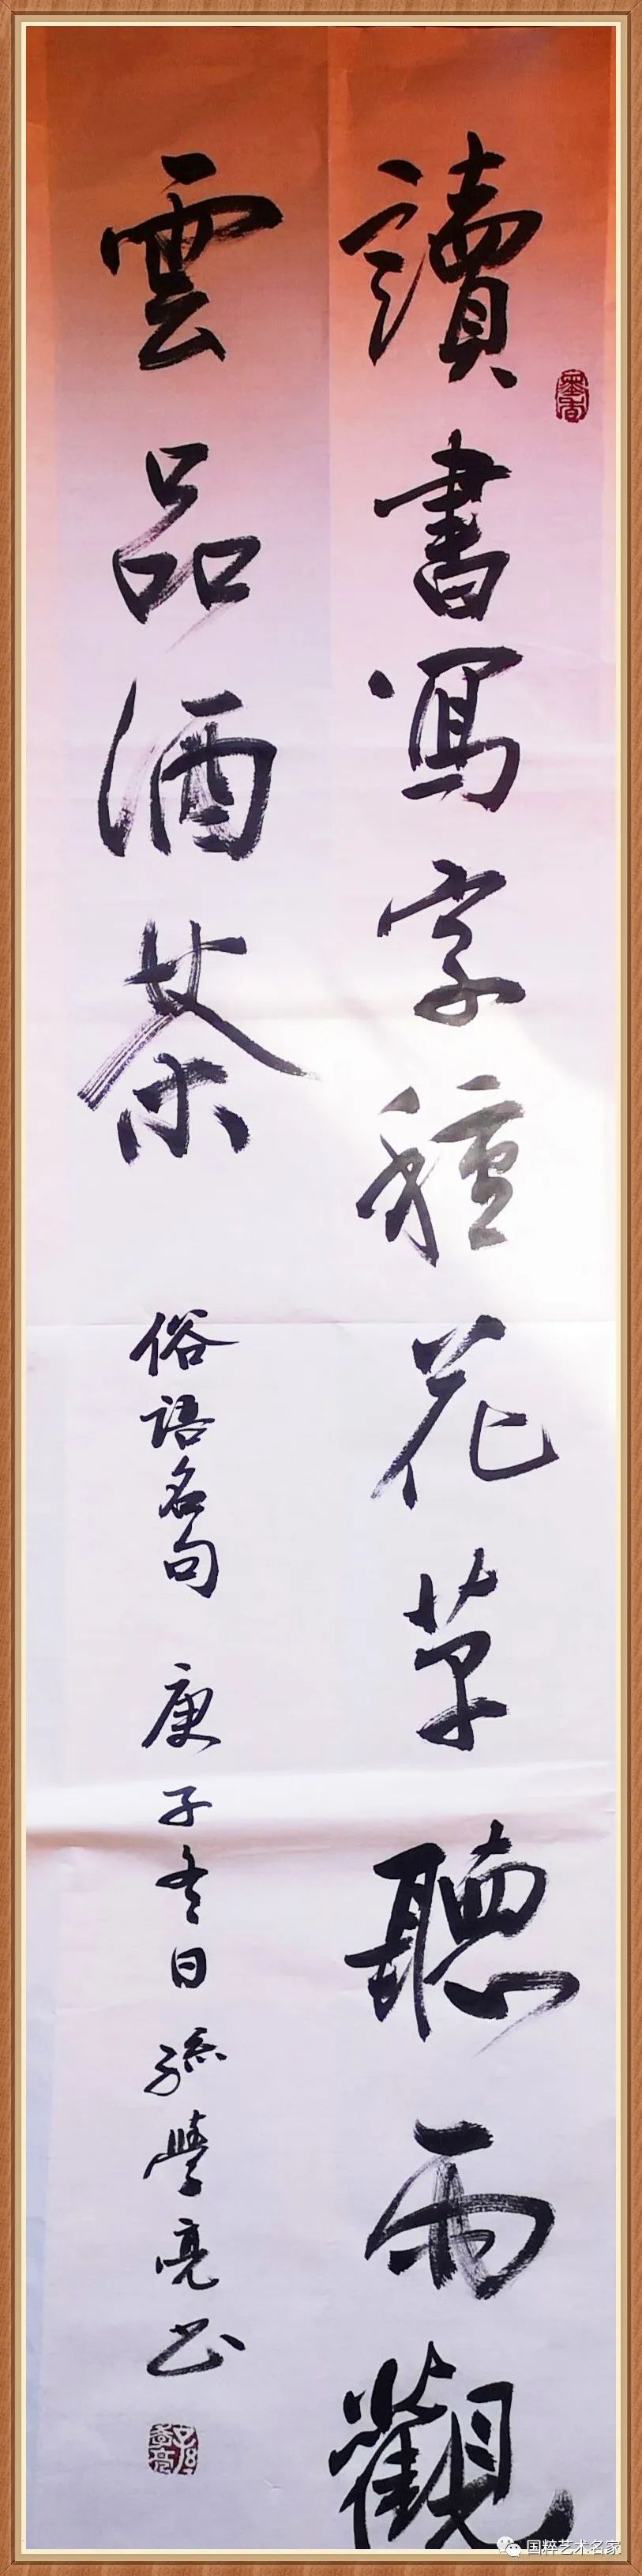 讀書寫字種花草聽雨觀
雲品酒茶
俗語名句 庚子冬日孫學亮书
墨香
孫學亮
国粹艺术名家